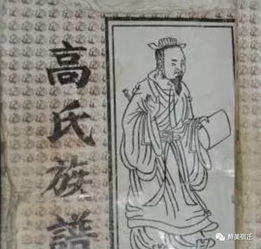 高氏族譜
醉美宿迁